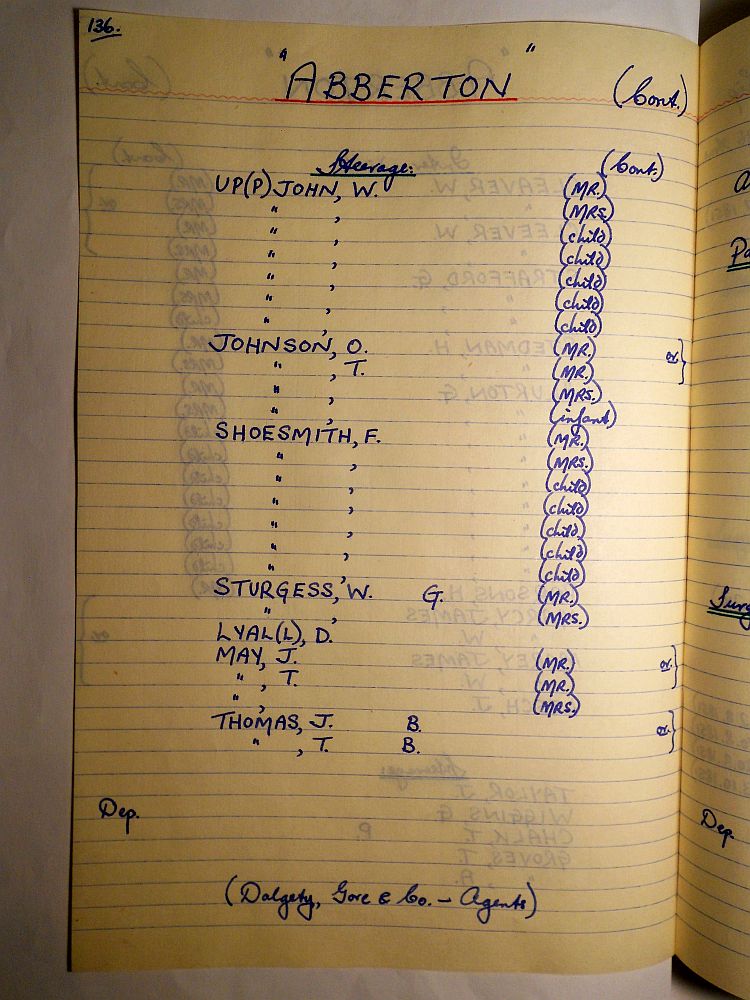 136.
"ABBERTON" (Cont.)
Steerage: (Cont.)
UP(P)JOHN, W. (MR.)
" , (MRS.)
" , (child)
" , (child)
" , (child)
" , (child)
" , (child)
JOHNSON, O. (MR.) or }
" , T. (MR.)
" , (MRS.)
" , (infant)
SHOESMITH, F. (MR.)
" , (MRS.)
" , (child)
" , (child)
" , (child)
" , (child)
" , (child)
STURGESS, W. G. (MR.)
" , (MRS.)
LYAL(L), D.
MAY, J. (MR.) or }
" , T. (MR.)
" , (MRS.)
THOMAS, J. B. or }
" , T. B.
Dep.
(Dalgety, Gore & Co. - Agents)
Dep.